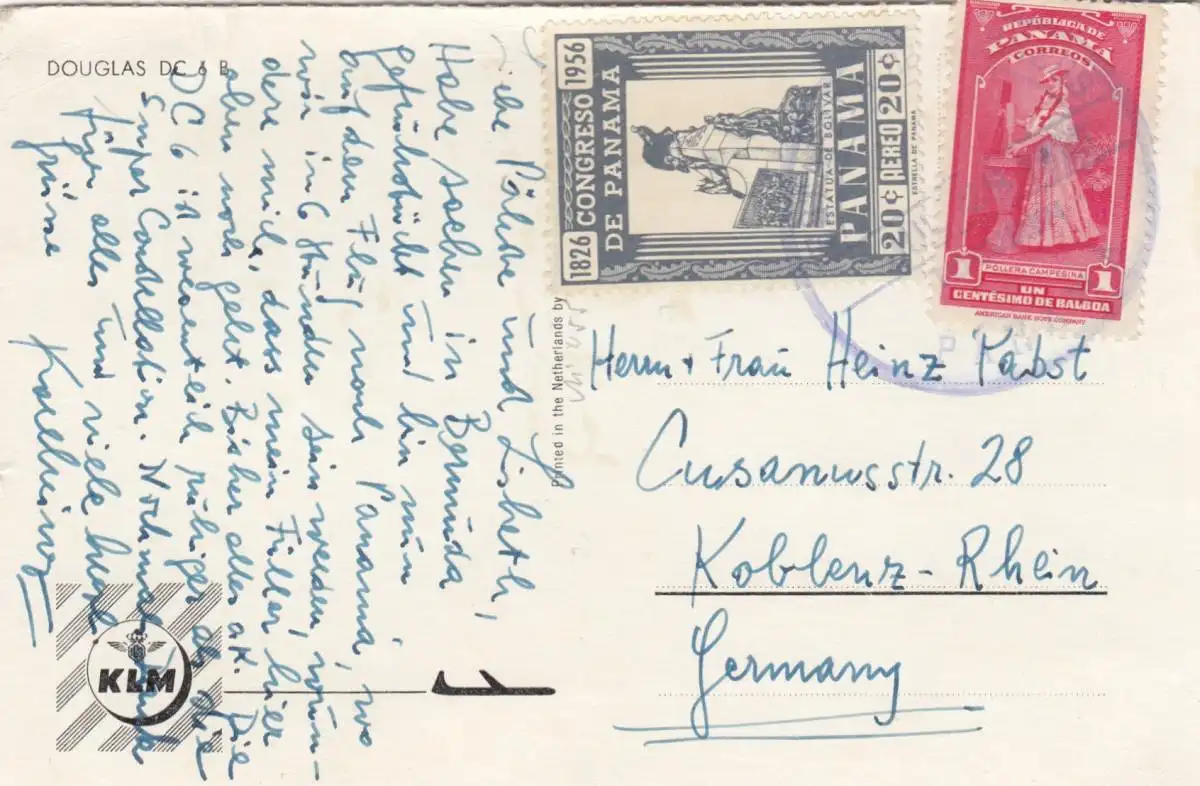 DOUGLAS DC 6 B
und Lisbeth,
Habe soeben in Bermuda
gefrühstückt und bin nun
auf dem Flug nach Panama, wo
wir in 6 Stunden sein werden, wun-
dere mich, dass mein Füller hier
oben noch geht. Bisher alles ok. Die
DC 6 ist wesentlich ruhiger als die
Super Constellation. Nochmal Dank
für alles und viele herzl.
Grüsse
Karlheinz
KLM
Printed in the Netherlands by
1826 CONGRESO 1956
DE PANAMA
ESTATUA DE BOLIVAR
ESTRELLA DE PANAMA
PANAMA
20¢ AEREO 20¢
REPÚBLICA DE
PANAMÁ
CORREOS
1 POLLERA CAMPESINA 1
UN
CENTÉSIMO DE BALBOA
AMERICAN BANK NOTE COMPANY
Herrn + Frau Heinz Pabst
Cusanusstr. 28
Koblenz-Rhein
Germany